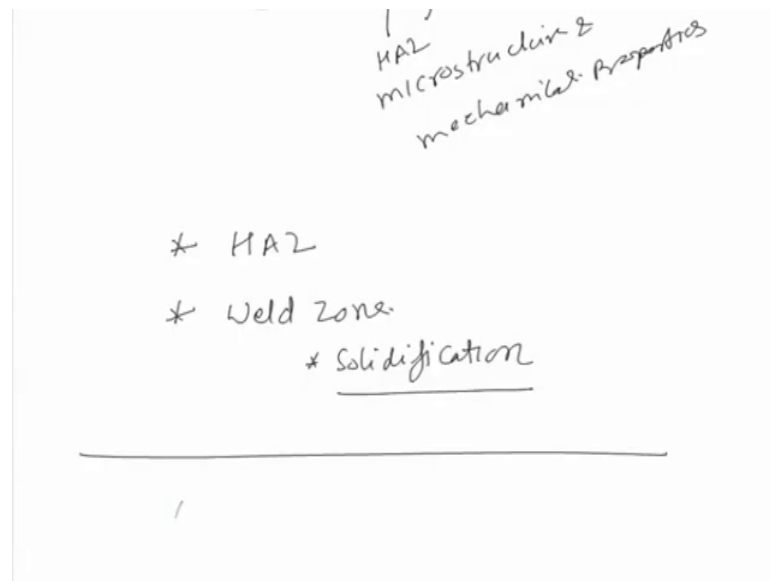 HAZ
microstructure &
mechanical Properties
* HAZ
* Weld Zone.
* Solidification